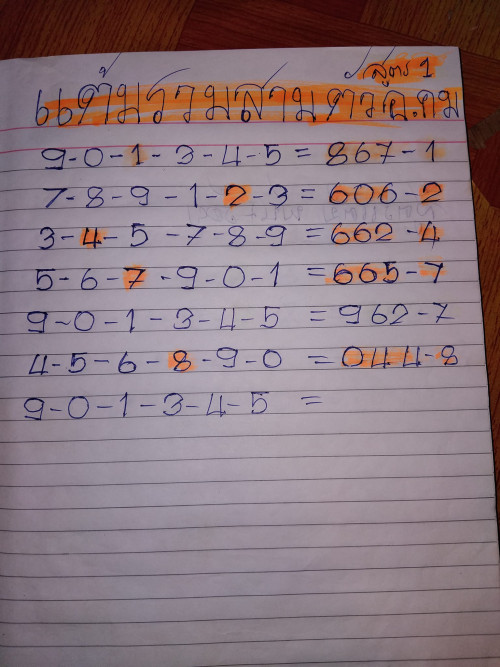 สูตร 1
แต้มรวมสามตัวอ.คม
9-0-1-3-4-5 = 867-1
7-8-9-1-2-3 = 606-2
3-4-5-7-8-9 = 662-4
5-6-7-9-0-1 = 665-7
9-0-1-3-4-5 = 962-7
4-5-6-8-9-0 = 044-8
9-0-1-3-4-5 =